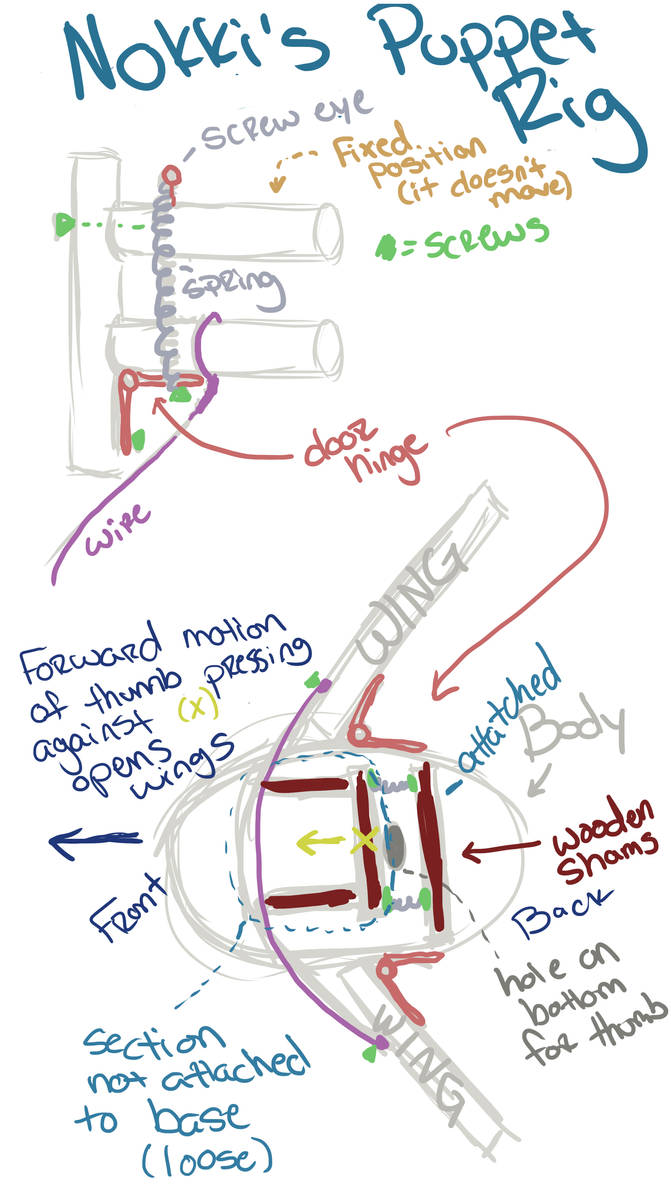 Nokki's Puppet
Rig
screw eye
Fixed
position
(it doesn't
move)
= screws
spring
door
hinge
wire
WING
Forward motion
of thumb pressing
against (x)
opens
wings
attatched
Body
wooden
shams
Front
Back
hole on
bottom
for thumb
WING
section
not attached
to base
(loose)